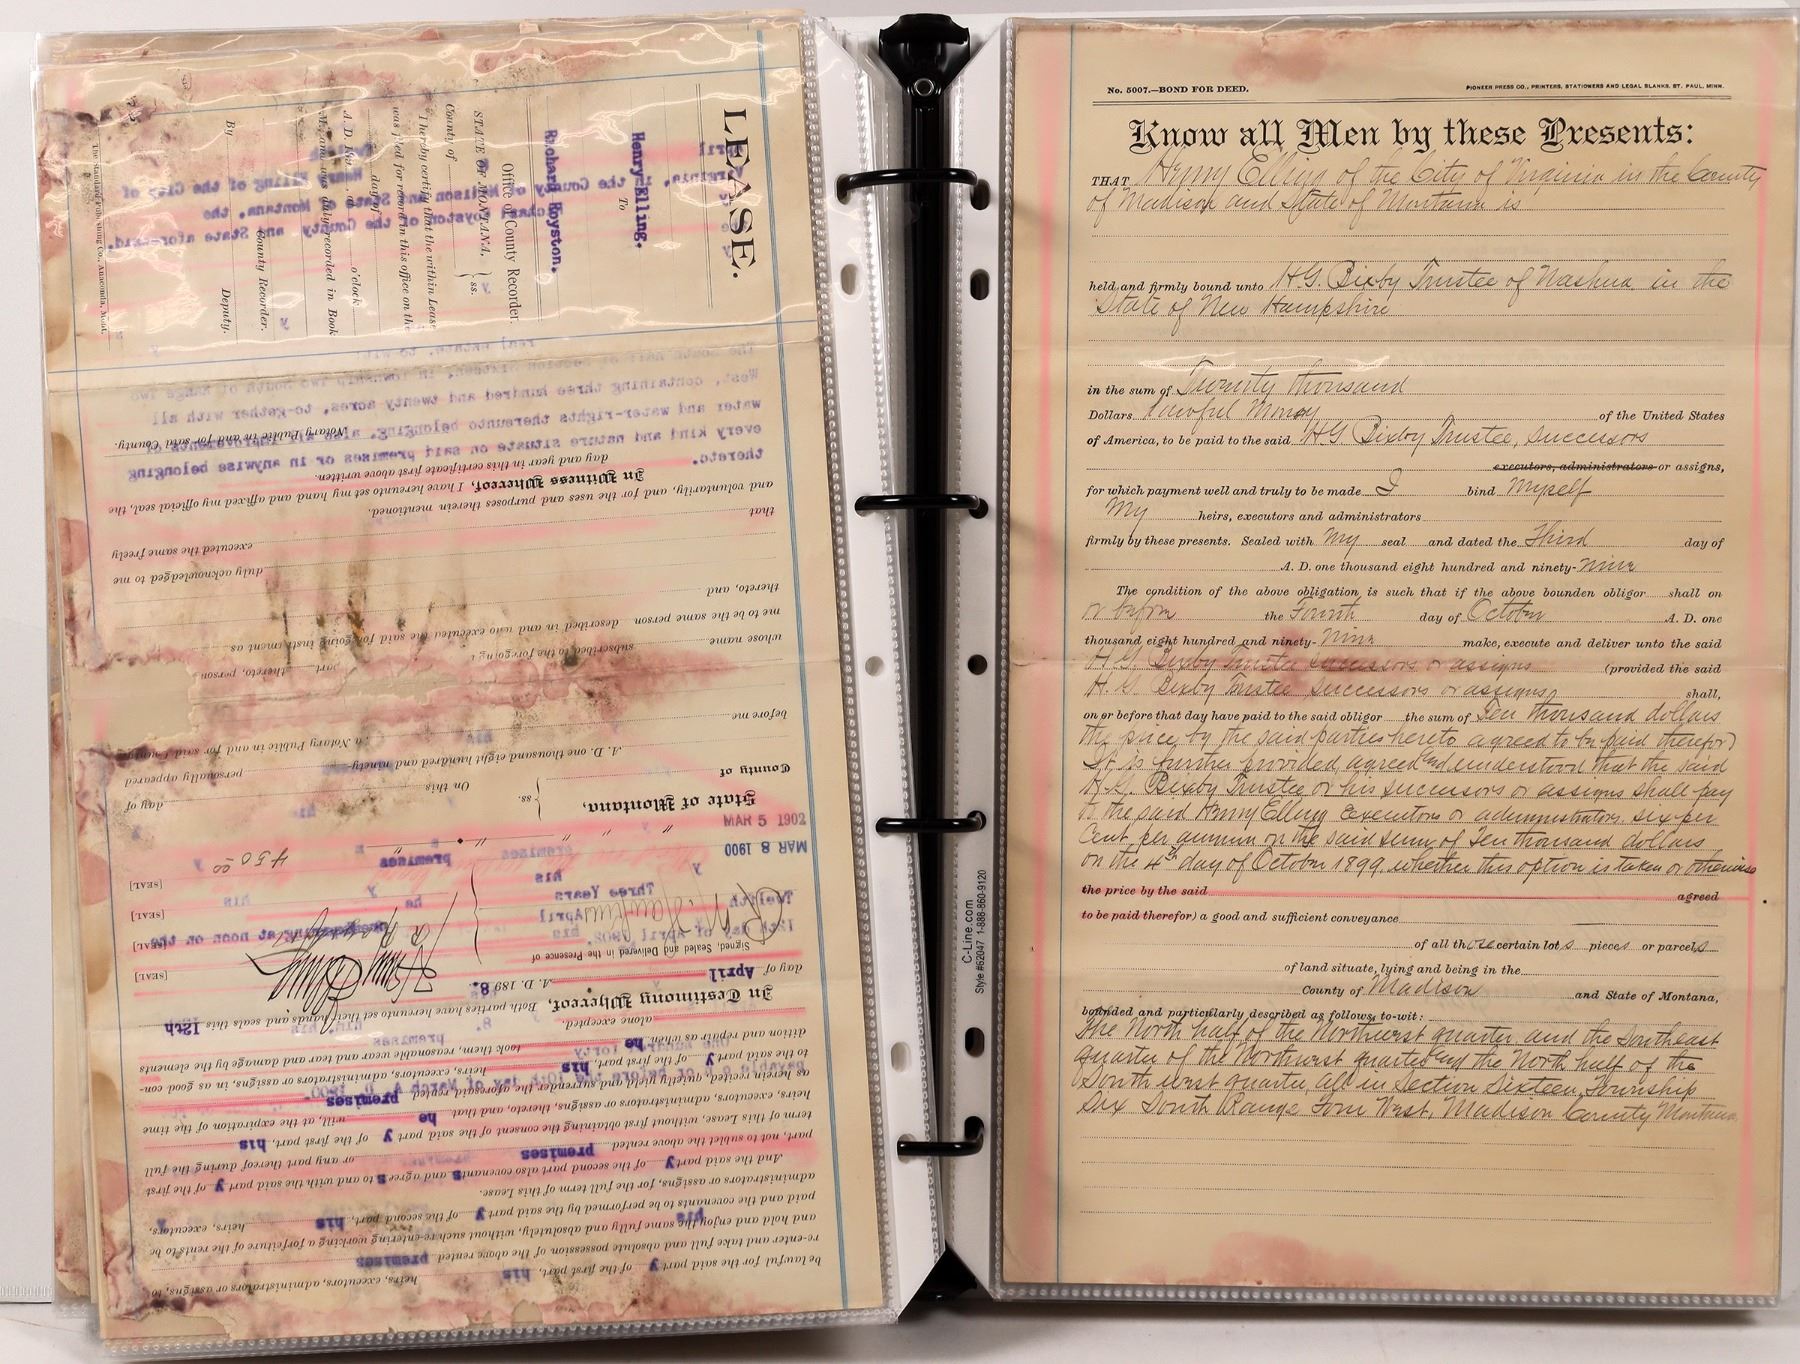 LEASE.
Henry Elling.
To
Richard Royston.
Office of County Recorder.
STATE OF MONTANA, } ss.
County of
I hereby certify that the within Lease
was filed for record in this office on the
day of
A. D. 189 , at o'clock
M., and was duly recorded in Book
County Recorder.
By Deputy.
The Standard Publishing Co., Anaconda, Mont.
Henry Elling of the City of
Virginia, in the County of Madison and State of Montana, the
Richard Royston of the County and State aforesaid.
real estate, to wit:
The South half of Section Sixteen, in Township Two South of Range Two
West, containing three hundred and twenty acres, to-gether with all
water and water-rights thereunto belonging, also all improvements of
every kind and nature situate on said premises or in anywise belonging
thereto.
be lawful for the said party of the first part, his heirs, executors, administrators or assigns, to
re-enter and take full and absolute possession of the above rented premises
and hold and enjoy the same fully and absolutely, without such re-entering working a forfeiture of the rents to be
paid and the covenants to be performed by the said party of the second part, his heirs, executors,
administrators or assigns, for the full term of this Lease.
And the said party of the second part also covenants and agrees to and with the said party of the first
part, not to sublet the above rented premises or any part thereof during the full
term of this Lease, without first obtaining the consent of the said party of the first part, his
heirs, executors, administrators or assigns, thereto, and that he will, at the expiration of the time
as herein recited, quietly yield and surrender the aforesaid rented premises
to the said party of the first part, his heirs, executors, administrators or assigns, in as good con-
dition and repair as when he took them, reasonable wear and tear and damage by the elements
alone excepted.
In Testimony Whereof, Both parties have hereunto set their hands and seals this 12th
day of April A. D. 1898.
Signed, Sealed and Delivered in the Presence of
Henry Elling [SEAL]
[SEAL]
[SEAL]
[SEAL]
MAR 8 1900
MAR 5 1902
450 00
State of Montana,
County of } ss.
On this day of
A. D. one thousand eight hundred and ninety
personally appeared
before me a Notary Public in and for said County
whose name subscribed to the foregoing instrument as part thereto, person
me to be the same person described in and who executed the said foregoing instrument
thereto, and
duly acknowledged to me
that executed the same freely
and voluntarily, and for the uses and purposes therein mentioned.
In Witness Whereof, I have hereunto set my hand and affixed my official seal, the
day and year in this certificate first above written.
Notary Public in and for said County.
C-Line.com
Style #62047 1-888-860-9120
No. 5007.—BOND FOR DEED.
PIONEER PRESS CO., PRINTERS, STATIONERS AND LEGAL BLANKS, ST. PAUL, MINN.
Know all Men by these Presents:
THAT Henry Elling of the City of Virginia in the County
of Madison and State of Montana is
held and firmly bound unto H.G. Bixby Trustee of Nashua in the
State of New Hampshire
in the sum of Twenty thousand
Dollars lawful Money of the United States
of America, to be paid to the said H.G. Bixby Trustee, successors
executors, administrators or assigns,
for which payment well and truly to be made I bind Myself
My heirs, executors and administrators
firmly by these presents. Sealed with My seal and dated the Third day of
A. D. one thousand eight hundred and ninety-nine
The condition of the above obligation is such that if the above bounden obligor shall on
or before the Fourth day of October A. D. one
thousand eight hundred and ninety-nine make, execute and deliver unto the said
H. G. Bixby Trustee successors or assigns (provided the said
H. G. Bixby Trustee successors or assigns, shall,
on or before that day have paid to the said obligor the sum of Ten thousand dollars
the price by the said parties hereto agreed to be paid therefor)
It is further provided, agreed and understood that the said
H.G. Bixby Trustee or his successors or assigns shall pay
to the said Henry Elling Executors or administrators six per
cent per annum on the said sum of Ten thousand dollars
on the 4th day of October 1899, whether this option is taken or otherwise
the price by the said agreed
to be paid therefor) a good and sufficient conveyance
of all those certain lots pieces or parcels
of land situate, lying and being in the
County of Madison and State of Montana,
bounded and particularly described as follows, to-wit:
The North half of the Northwest quarter, and the Southeast
quarter of the Northwest quarter and the North half of the
Southwest quarter, all in Section Sixteen, Township
Six South Range Four West, Madison County Montana